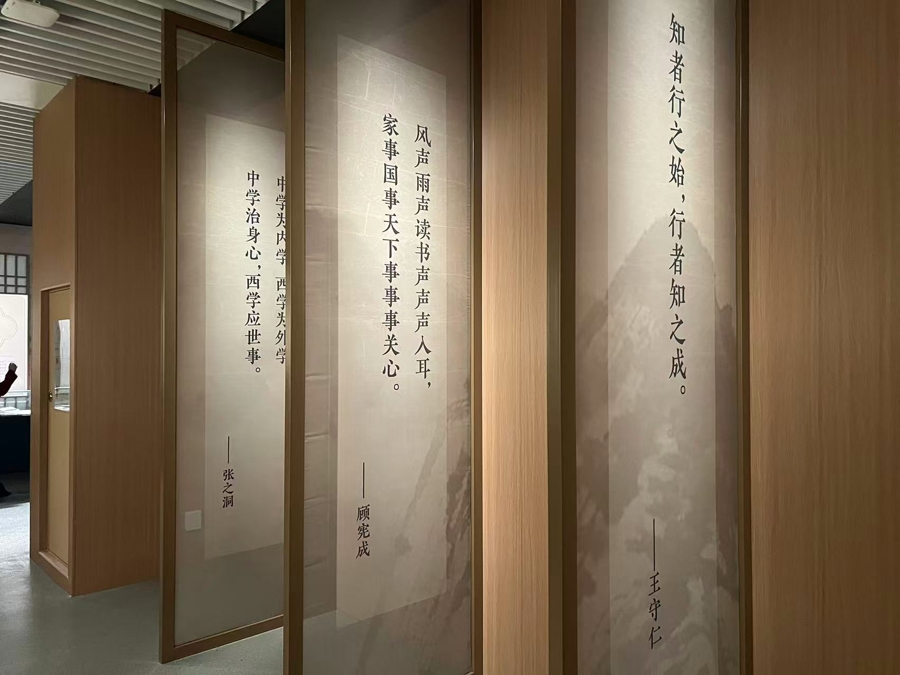 知者行之始，行者知之成。
——王守仁
风声雨声读书声声声入耳，
家事国事天下事事事关心。
——顾宪成
中学为内学 西学为外学
中学治身心，西学应世事。
——张之洞